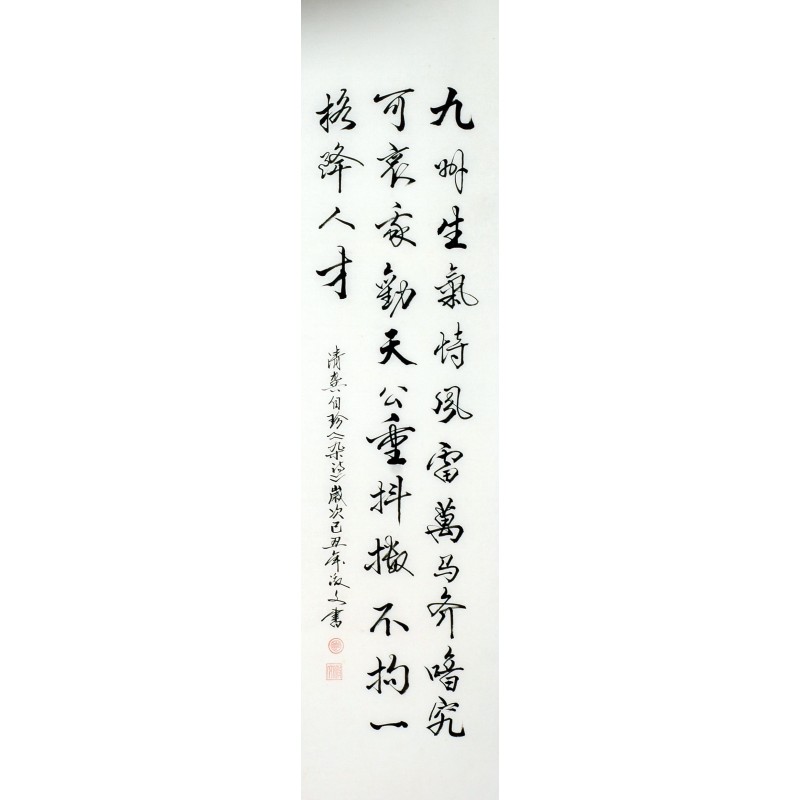 九州生氣恃風雷萬马齐喑究
可哀我勸天公重抖擻不拘一
格降人才
清龚自珍《杂诗》歲次己丑年淑文書